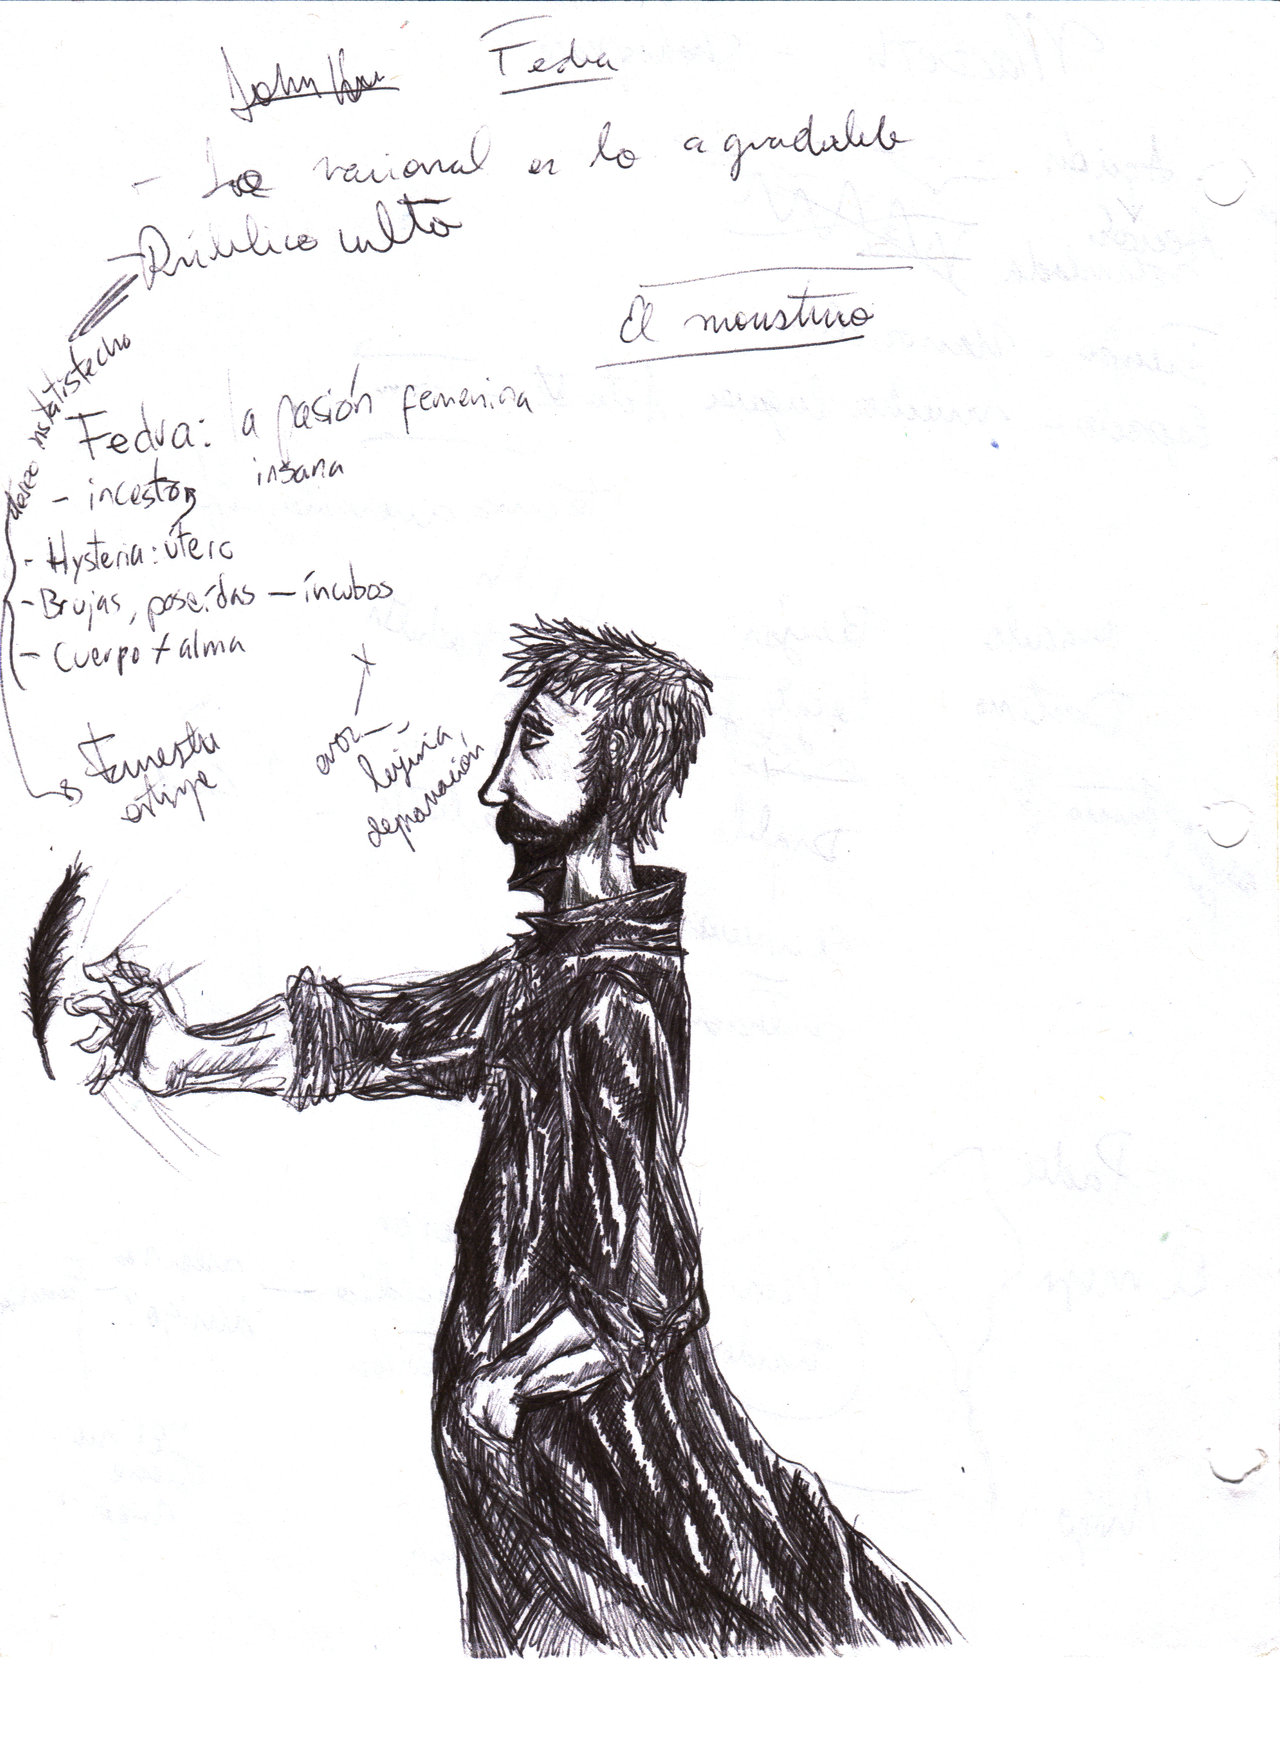 John Fedra
- Lo racional es lo agradable
- Público culto
El moustruo
deseo insatisfecho
Fedra: la pasión femenina
insana
- incestos
- Hysteria: útero
- Brujas, poseídas — íncubos
- Cuerpo + alma
lujuria,
depravación